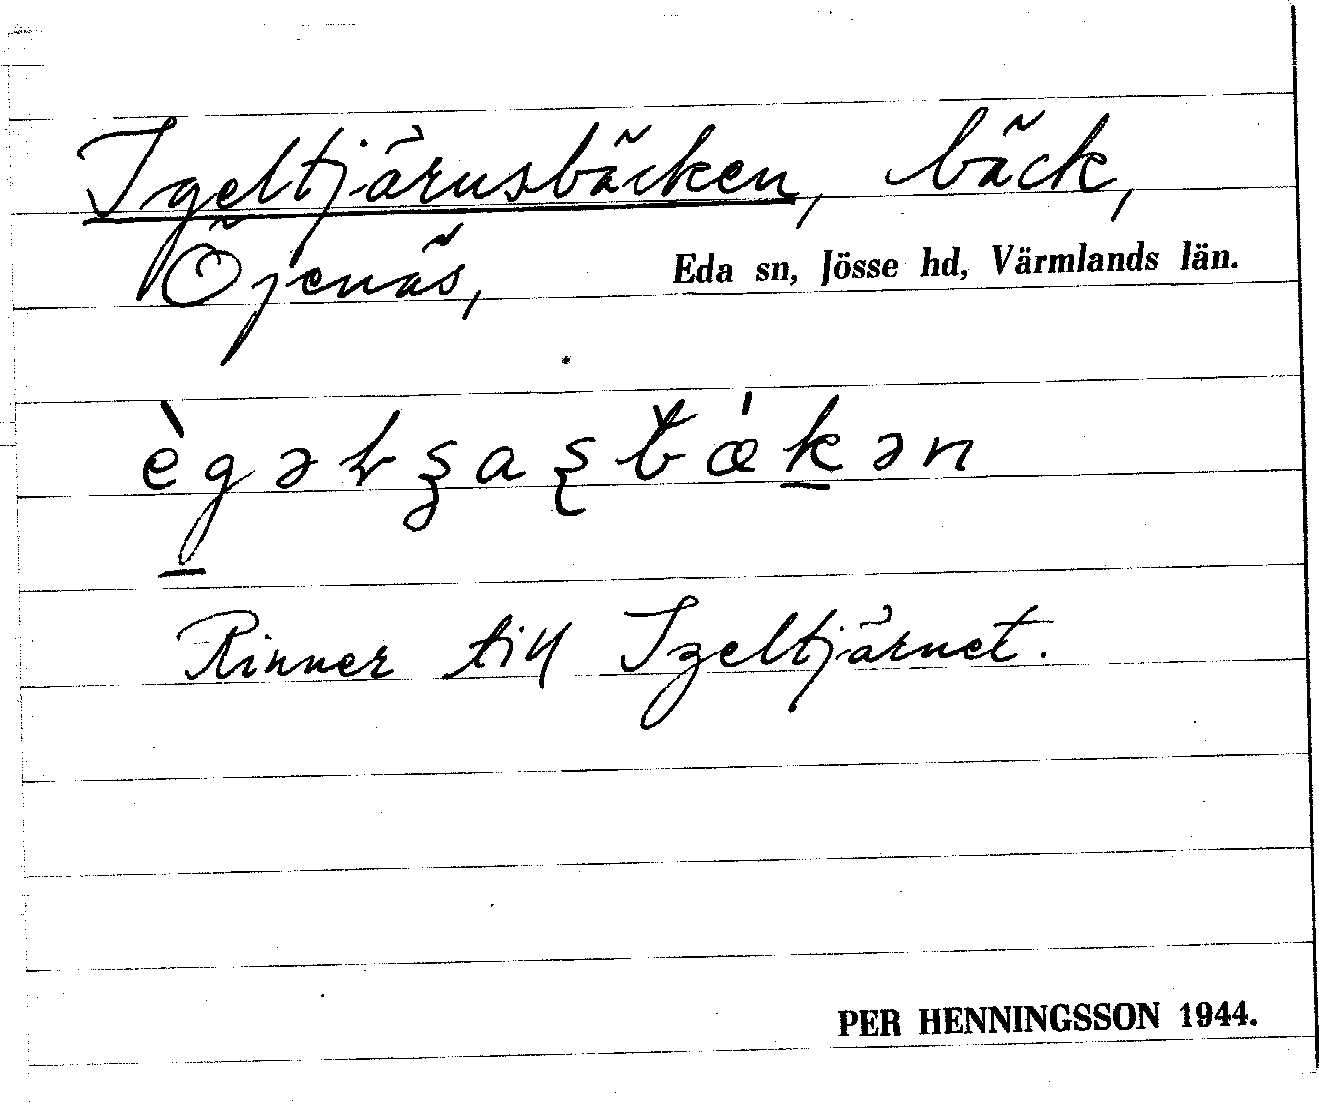 Igeltjärnsbäcken, bäck,
Öjenäs, Eda sn, Jösse hd, Värmlands län.
Rinner till Igeltjärnet.
PER HENNINGSSON 1944.